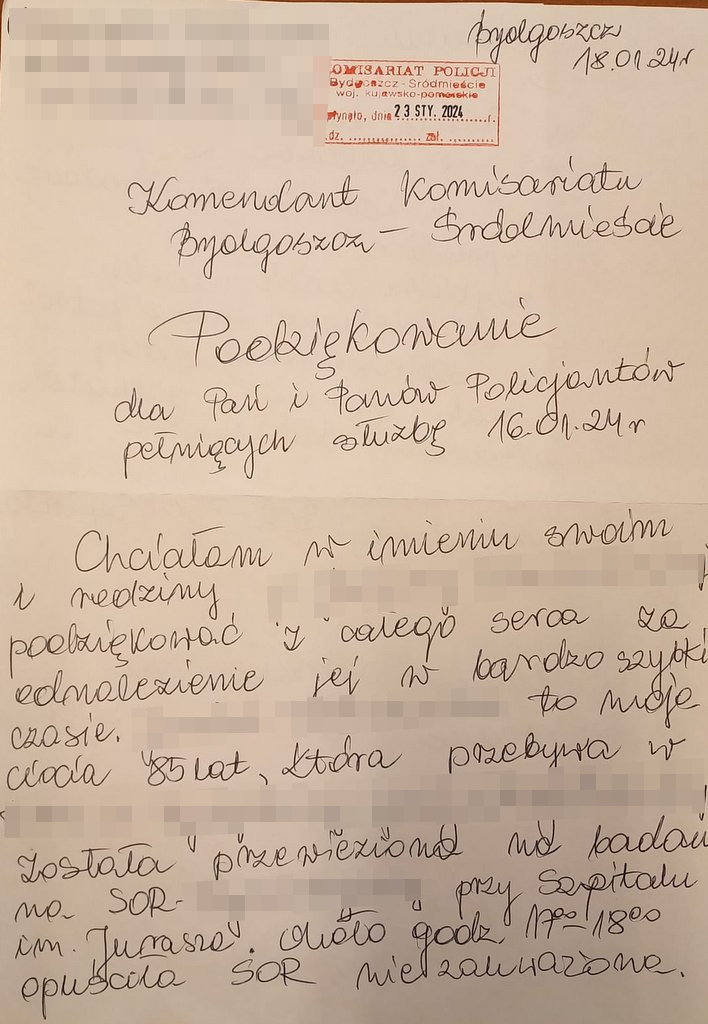 Bydgoszcz
18.01.24r
KOMISARIAT POLICJI
Bydgoszcz - Śródmieście
woj. kujawsko-pomorskie
Wpłynęło, dnia 23 STY. 2024 r.
L.dz. ............ zał. ............
Komendant Komisariatu
Bydgoszcz - Śródmieście
Podziękowanie
dla Pań i Panów Policjantów
pełniących służbę 16.01.24r
Chciałam w imieniu swoim
i rodziny
podziękować z całego serca za
odnalezienie jej w bardzo szybki
czasie. to moja
ciocia 85 lat, która przebywa w
Została przewieziona na badań
na SOR- przy Szpitalu
im. Jurasza. Około godz. 17⁰⁰-18⁰⁰
opuściła SOR niezauważona.